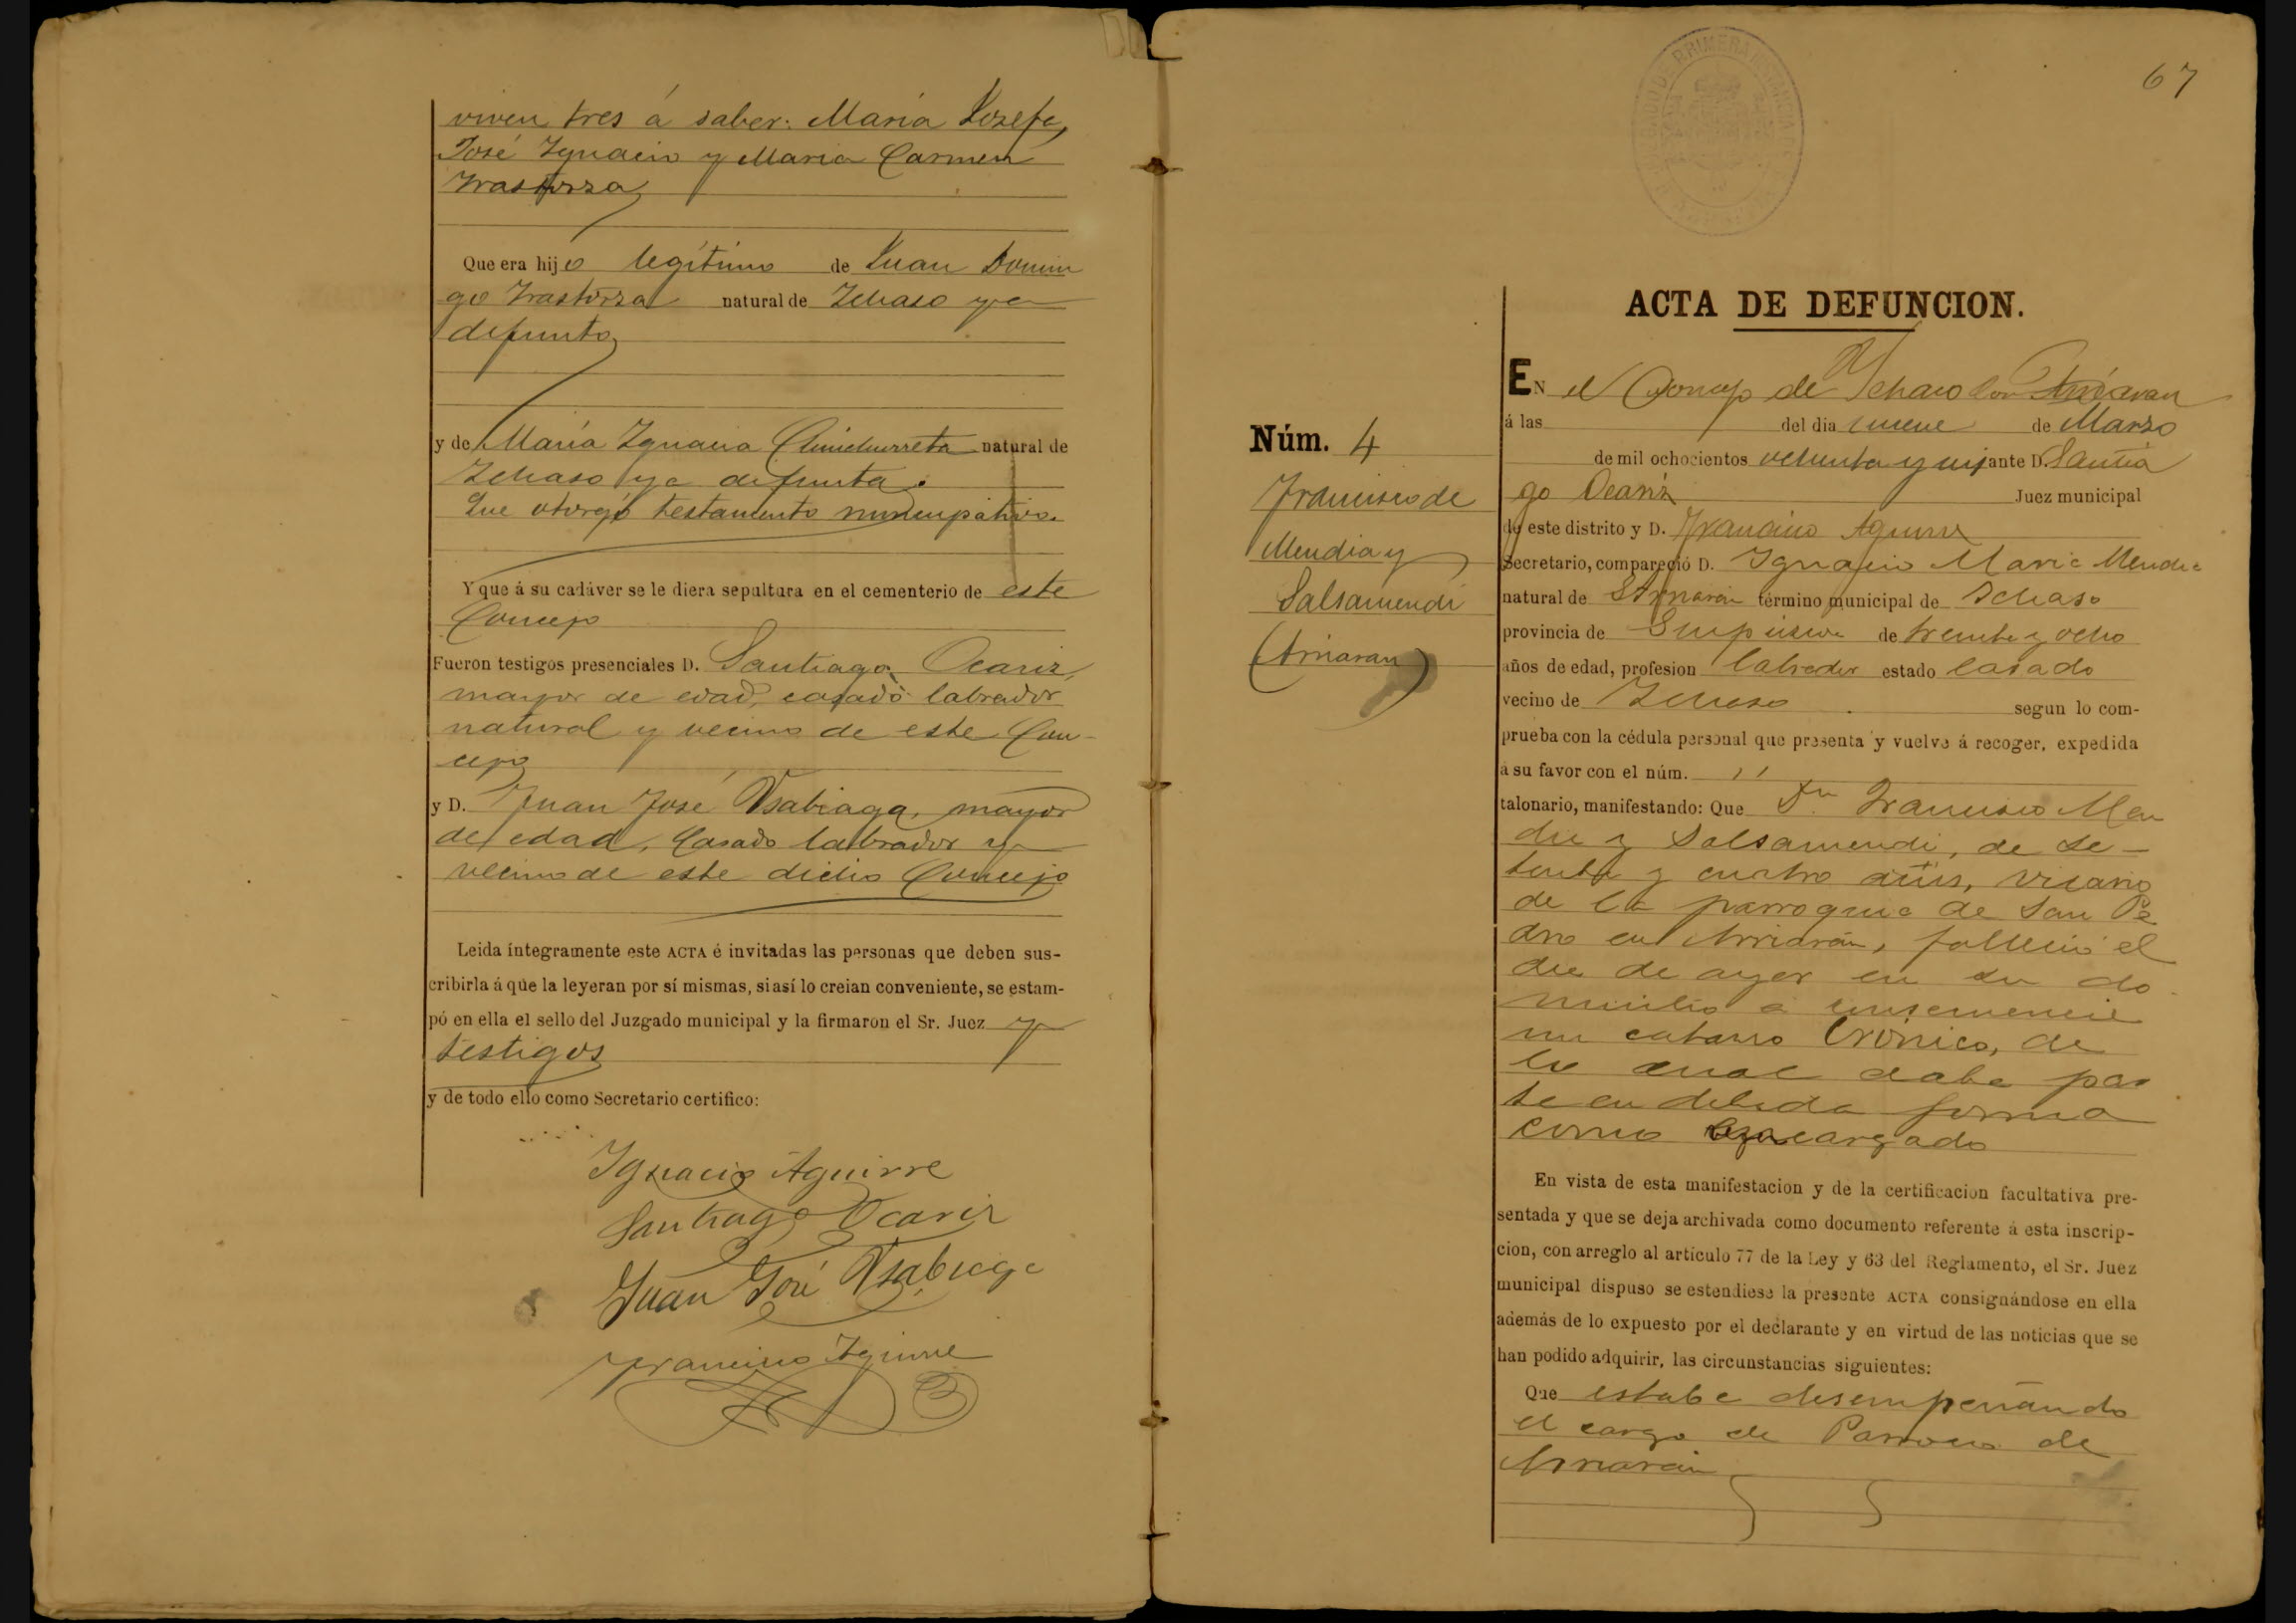 viven tres á saber: María Josefa,
José Ygnacio y María Carmen
Yrastorza
Que era hijo legítimo de Juan Domin
go Yrastorza natural de Ichaso ya
difunto
y de María Ygnacia natural de
Ichaso ya difunta.
Que otorgó testamento nuncupativo.
Y que á su cadáver se le diera sepultura en el cementerio de este
Concejo
Fueron testigos presenciales D. Santiago Ocariz,
mayor de edad, casado labrador
natural y vecino de este Con-
cejo
y D. Juan José Ysabiaga, mayor
de edad, casado labrador y
vecino de este dicho Concejo
Leida íntegramente este ACTA é invitadas las personas que deben sus-
cribirla á que la leyeran por sí mismas, si así lo creian conveniente, se estam-
pó en ella el sello del Juzgado municipal y la firmaron el Sr. Juez y
testigos
y de todo ello como Secretario certifico:
Ygnacio Aguirre
Santiago Ocariz
Juan José Ysabiaga
Francisco Aguirre
67
Núm. 4
Francisco de
Mendia y
Salsamendi
(Arriaran)
ACTA DE DEFUNCION.
EN el Concejo de Ychaso
á las del dia nueve de Marzo
de mil ochocientos ochenta y ante D. Santia
go Ocariz Juez municipal
de este distrito y D. Francisco Aguirre
Secretario, compareció D. Ygnacio Maria Mendia
natural de Arriarán término municipal de Ichaso
provincia de Guipúzcoa de treinta y ocho
años de edad, profesion labrador estado casado
vecino de Ichaso segun lo com-
prueba con la cédula personal que presenta y vuelve á recoger, expedida
á su favor con el núm. ''
talonario, manifestando: Que Dn Francisco Men
dia y Salsamendi, de se-
tenta y cuatro años, vicario
de la parroquia de San Pe
dro en Arriarán, falleció el
dia de ayer en su do
micilio á consecuencia
un catarro crónico, de
lo cual daba par
te en debida forma
como encargado
En vista de esta manifestacion y de la certificacion facultativa pre-
sentada y que se deja archivada como documento referente á esta inscrip-
cion, con arreglo al artículo 77 de la Ley y 63 del Reglamento, el Sr. Juez
municipal dispuso se estendiese la presente ACTA consignándose en ella
además de lo expuesto por el declarante y en virtud de las noticias que se
han podido adquirir, las circunstancias siguientes:
Que estaba desempeñando
el cargo de Parroco de
Arriarán